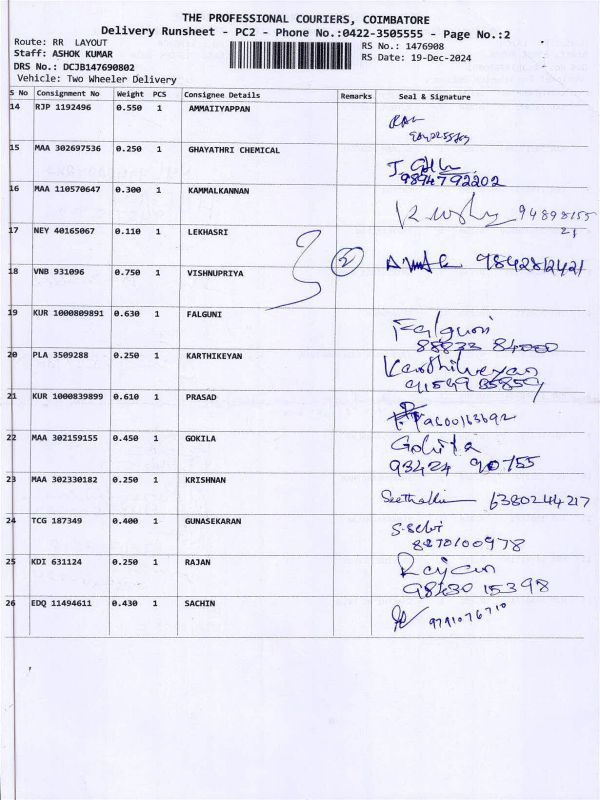 THE PROFESSIONAL COURIERS, COIMBATORE
Delivery Runsheet - PC2 - Phone No.:0422-3505555 - Page No.:2
Route: RR LAYOUT
Staff: ASHOK KUMAR
DRS No.: DCJB147690802
Vehicle: Two Wheeler Delivery
RS No.: 1476908
RS Date: 19-Dec-2024
S No Consignment No Weight PCS Consignee Details Remarks Seal & Signature
14 RJP 1192496 0.550 1 AMMAIIYAPPAN
15 MAA 302697536 0.250 1 GHAYATHRI CHEMICAL
9894792202
16 MAA 110570647 0.300 1 KAMMALKANNAN
17 NEY 40165067 0.110 1 LEKHASRI
2 9842812421
18 VNB 931096 0.750 1 VISHNUPRIYA
19 KUR 1000809891 0.630 1 FALGUNI
Falguni
88833 84000
20 PLA 3509288 0.250 1 KARTHIKEYAN
Karthikeyan
21 KUR 1000839899 0.610 1 PRASAD
9600163692
22 MAA 302159155 0.450 1 GOKILA
Gokila
93424 90755
23 MAA 302330182 0.250 1 KRISHNAN
6380244217
24 TCG 187349 0.400 1 GUNASEKARAN
S.Selvi
8270100978
25 KDI 631124 0.250 1 RAJAN
Rajan
98430 15398
26 EDQ 11494611 0.430 1 SACHIN
9791076710